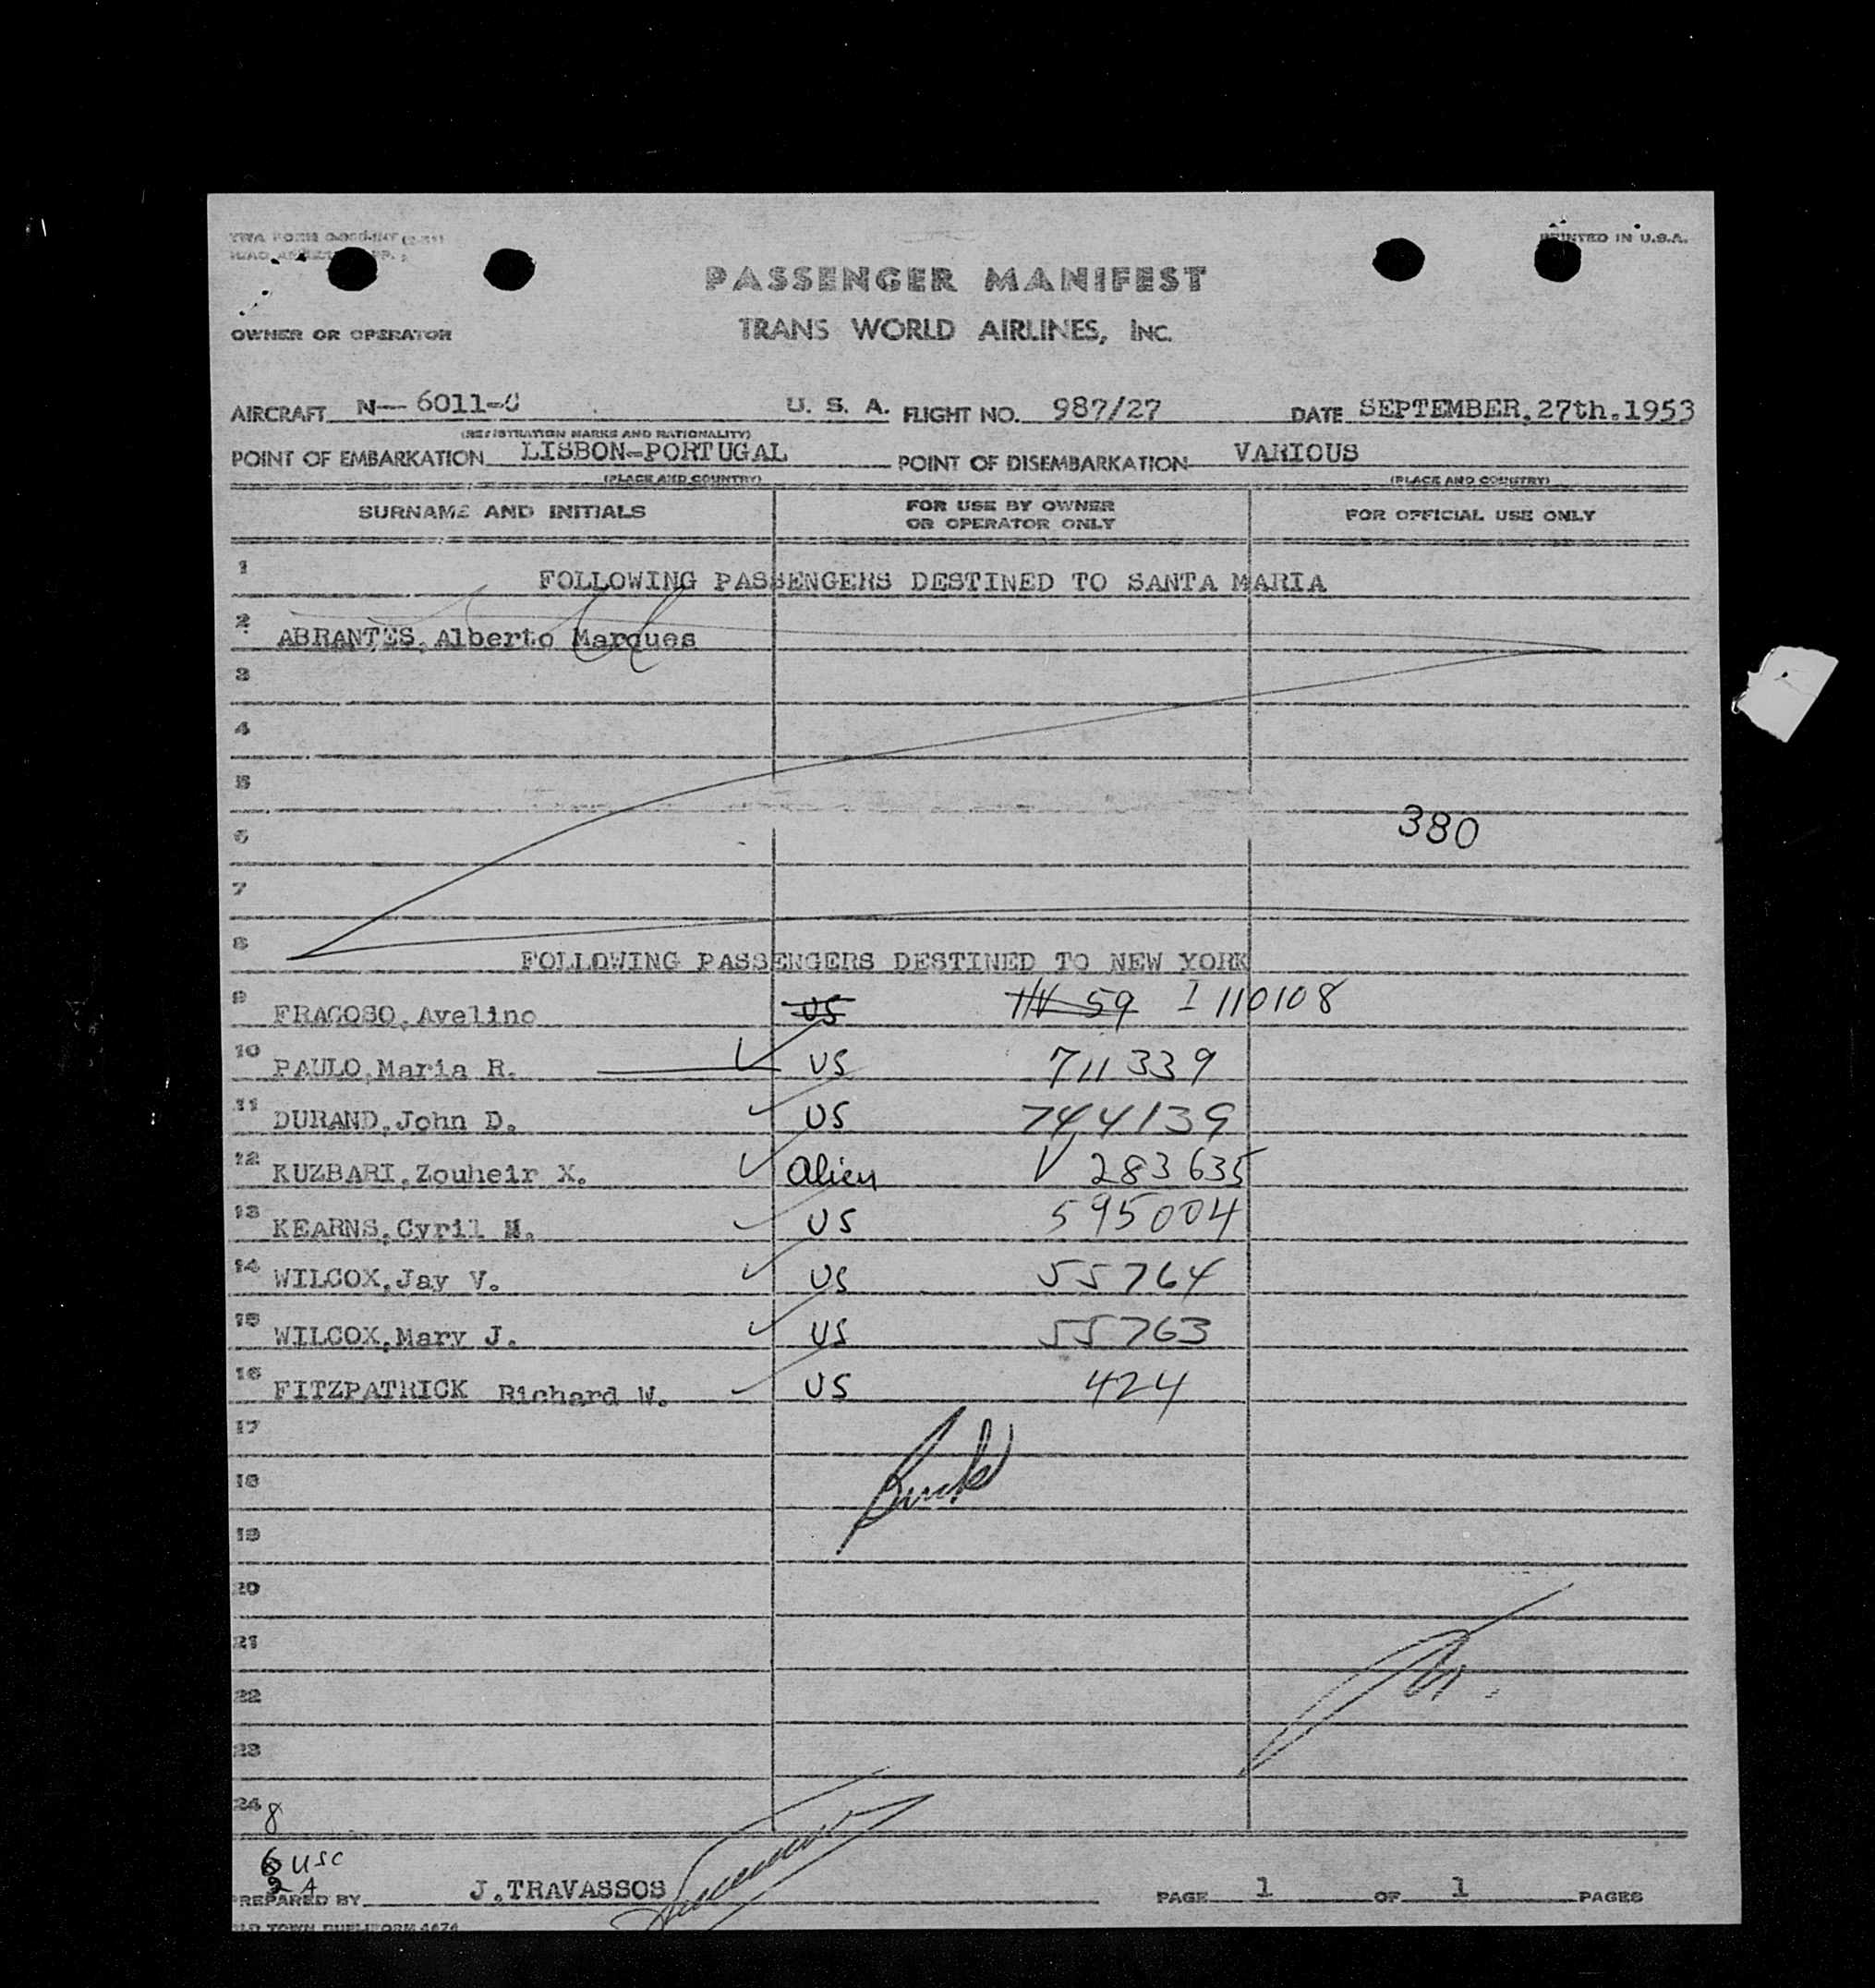 PRINTED IN U.S.A.
PASSENGER MANIFEST
OWNER OR OPERATOR TRANS WORLD AIRLINES, INC.
AIRCRAFT N- 6011-C U. S. A. FLIGHT NO. 987/27 DATE SEPTEMBER,27th.1953
(REGISTRATION MARKS AND NATIONALITY)
POINT OF EMBARKATION LISBON-PORTUGAL POINT OF DISEMBARKATION VARIOUS
(PLACE AND COUNTRY) (PLACE AND COUNTRY)
SURNAME AND INITIALS FOR USE BY OWNER OR OPERATOR ONLY FOR OFFICIAL USE ONLY
1 FOLLOWING PASSENGERS DESTINED TO SANTA MARIA
2 ABRANTES,Alberto Marques
3
4
5
6 380
7
8 FOLLOWING PASSENGERS DESTINED TO NEW YORK
9 FRAGOSO,Avelino US 59 I 110108
10 PAULO,Maria R. US 711339
11 DURAND,John D. US 744139
12 KUZBARI,Zouheir X. Alien V 283635
13 KEARNS,Cyril M. US 595004
14 WILCOX,Jay V. US 55764
15 WILCOX,Mary J. US 55763
16 FITZPATRICK Richard W. US 424
17
18
19
20
21
22
23
24 8
6 USC
2 A
PREPARED BY J.TRAVASSOS PAGE 1 OF 1 PAGES